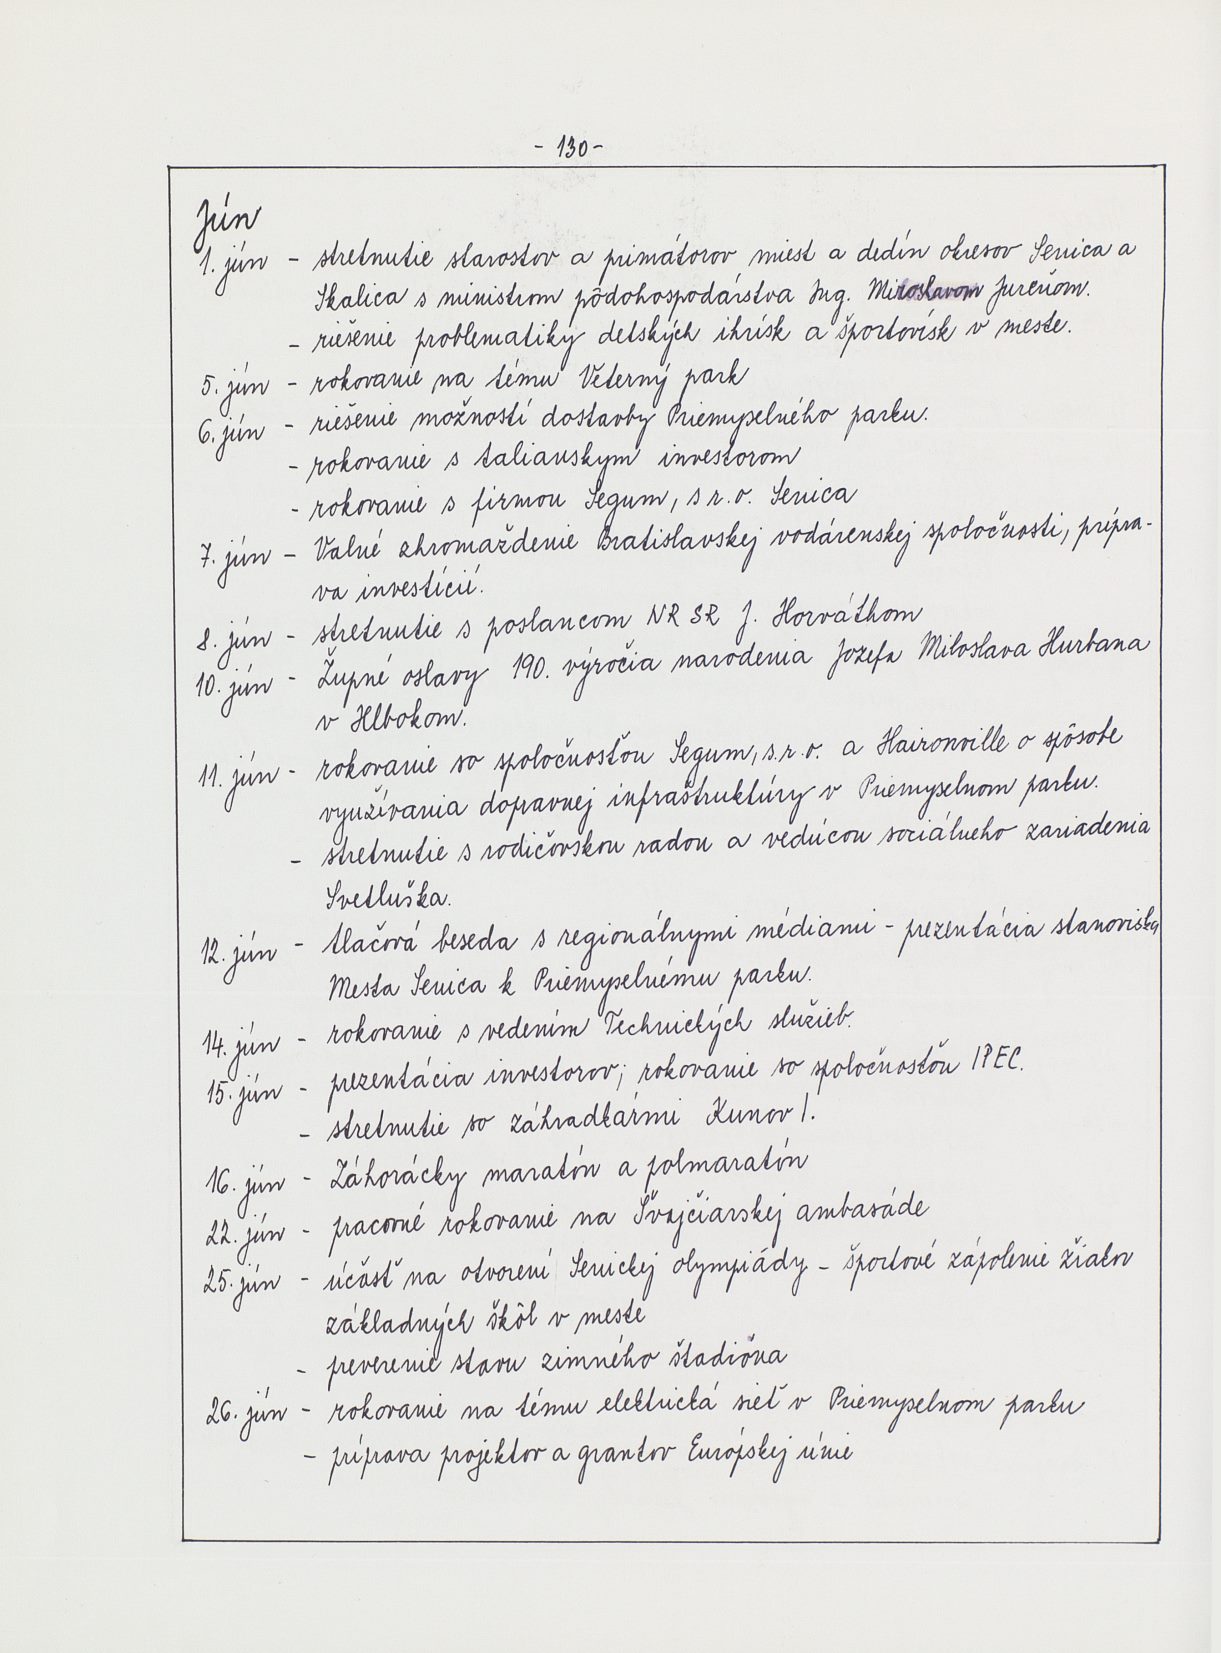 - 130 -
Jún
1. jún - stretnutie starostov a primátorov miest a dedín okresov Senica a
Skalica s ministrom pôdohospodárstva Ing. Miroslavom Jureňom.
- riešenie problematiky detských ihrísk a športovísk v meste.
5. jún - rokovanie na tému Veterný park
6. jún - riešenie možností dostavby Priemyselného parku.
- rokovanie s talianskym investorom
- rokovanie s firmou Segum, s r. o. Senica
7. jún - Valné zhromaždenie Bratislavskej vodárenskej spoločnosti, prípra-
va investícií.
8. jún - stretnutie s poslancom NR SR J. Horváthom
10. jún - Župné oslavy 190. výročia narodenia Jozefa Miloslava Hurbana
v Hlbokom.
11. jún - rokovanie so spoločnosťou Segum, s.r.o. a Haironville o spôsobe
využívania dopravnej infraštruktúry v Priemyselnom parku.
- stretnutie s rodičovskou radou a vedúcou sociálneho zariadenia
Svetluška.
12. jún - tlačová beseda s regionálnymi médiami - prezentácia stanoviska
Mesta Senica k Priemyselnému parku.
14. jún - rokovanie s vedením Technických služieb.
15. jún - prezentácia investorov; rokovanie so spoločnosťou IPEC.
- stretnutie so záhradkármi Kunov I.
16. jún - Záhorácky maratón a polmaratón
22. jún - pracovné rokovanie na Švajčiarskej ambasáde
25. jún - účasť na otvorení Senickej olympiády - športové zápolenie žiakov
základných škôl v meste
- preverenie stavu zimného štadióna
26. jún - rokovanie na tému elektrická sieť v Priemyselnom parku
- príprava projektov a grantov Európskej únie